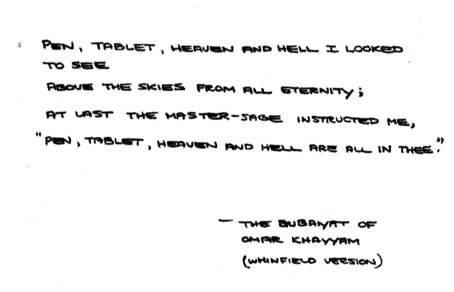 PEN, TABLET, HEAVEN AND HELL I LOOKED
TO SEE
ABOVE THE SKIES FROM ALL ETERNITY;
AT LAST THE MASTER-SAGE INSTRUCTED ME,
"PEN, TABLET, HEAVEN AND HELL ARE ALL IN THEE."
— THE RUBAIYAT OF
OMAR KHAYYAM
(WHINFIELD VERSION)